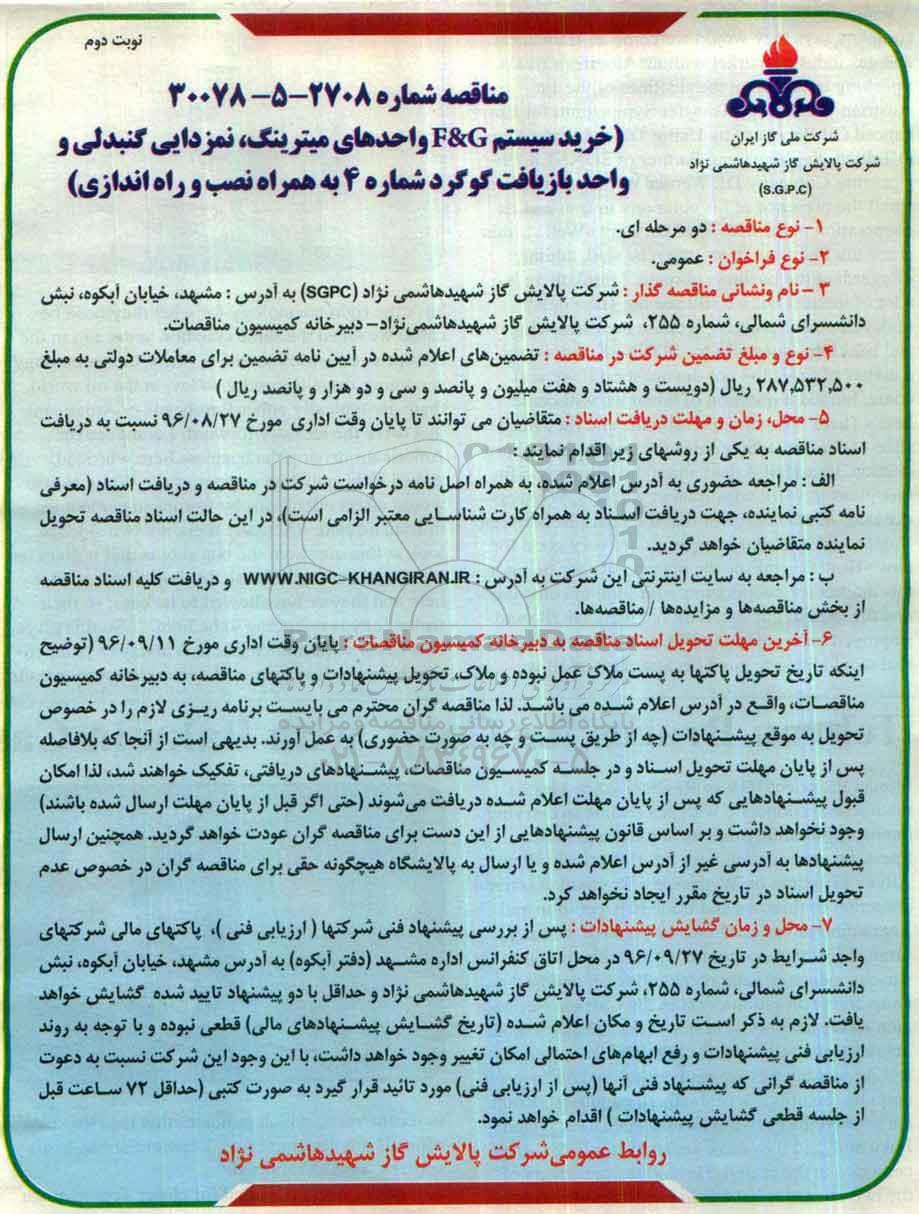 نوبت دوم
شرکت ملی گاز ایران
شرکت پالایش گاز شهیدهاشمی نژاد
(S.G.P.C)
مناقصه شماره ۲۷۰۸-۵-۳۰۰۷۸
(خرید سیستم F&G واحدهای میترینگ، نمزدایی گنبدلی و
واحد بازیافت گوگرد شماره ۴ به همراه نصب و راه اندازی)
۱- نوع مناقصه : دو مرحله ای.
۲- نوع فراخوان : عمومی.
۳ - نام ونشانی مناقصه گذار : شرکت پالایش گاز شهیدهاشمی نژاد (SGPC) به آدرس : مشهد، خیابان آبکوه، نبش
دانشسرای شمالی، شماره ۲۵۵، شرکت پالایش گاز شهیدهاشمی‌نژاد- دبیرخانه کمیسیون مناقصات.
۴- نوع و مبلغ تضمین شرکت در مناقصه : تضمین‌های اعلام شده در آیین نامه تضمین برای معاملات دولتی به مبلغ
۲۸۷,۵۳۲,۵۰۰ ریال (دویست و هشتاد و هفت میلیون و پانصد و سی و دو هزار و پانصد ریال )
۵- محل، زمان و مهلت دریافت اسناد : متقاضیان می توانند تا پایان وقت اداری مورخ ۹۶/۰۸/۲۷ نسبت به دریافت
اسناد مناقصه به یکی از روشهای زیر اقدام نمایند :
الف : مراجعه حضوری به آدرس اعلام شده، به همراه اصل نامه درخواست شرکت در مناقصه و دریافت اسناد (معرفی
نامه کتبی نماینده، جهت دریافت اسناد به همراه کارت شناسایی معتبر الزامی است)، در این حالت اسناد مناقصه تحویل
نماینده متقاضیان خواهد گردید.
ب : مراجعه به سایت اینترنتی این شرکت به آدرس : WWW.NIGC-KHANGIRAN.IR و دریافت کلیه اسناد مناقصه
از بخش مناقصه‌ها و مزایده‌ها / مناقصه‌ها.
۶- آخرین مهلت تحویل اسناد مناقصه به دبیرخانه کمیسیون مناقصات : پایان وقت اداری مورخ ۹۶/۰۹/۱۱ (توضیح
اینکه تاریخ تحویل پاکتها به پست ملاک عمل نبوده و ملاک، تحویل پیشنهادات و پاکتهای مناقصه، به دبیرخانه کمیسیون
مناقصات، واقع در آدرس اعلام شده می باشد. لذا مناقصه گران محترم می بایست برنامه ریزی لازم را در خصوص
تحویل به موقع پیشنهادات (چه از طریق پست و چه به صورت حضوری) به عمل آورند. بدیهی است از آنجا که بلافاصله
پس از پایان مهلت تحویل اسناد و در جلسه کمیسیون مناقصات، پیشنهادهای دریافتی، تفکیک خواهند شد، لذا امکان
قبول پیشنهادهایی که پس از پایان مهلت اعلام شده دریافت می‌شوند (حتی اگر قبل از پایان مهلت ارسال شده باشند)
وجود نخواهد داشت و بر اساس قانون پیشنهادهایی از این دست برای مناقصه گران عودت خواهد گردید. همچنین ارسال
پیشنهادها به آدرسی غیر از آدرس اعلام شده و یا ارسال به پالایشگاه هیچگونه حقی برای مناقصه گران در خصوص عدم
تحویل اسناد در تاریخ مقرر ایجاد نخواهد کرد.
۷- محل و زمان گشایش پیشنهادات : پس از بررسی پیشنهاد فنی شرکتها ( ارزیابی فنی )، پاکتهای مالی شرکتهای
واجد شرایط در تاریخ ۹۶/۰۹/۲۷ در محل اتاق کنفرانس اداره مشهد (دفتر آبکوه) به آدرس مشهد، خیابان آبکوه، نبش
دانشسرای شمالی، شماره ۲۵۵، شرکت پالایش گاز شهیدهاشمی نژاد و حداقل با دو پیشنهاد تایید شده گشایش خواهد
یافت. لازم به ذکر است تاریخ و مکان اعلام شده (تاریخ گشایش پیشنهادهای مالی) قطعی نبوده و با توجه به روند
ارزیابی فنی پیشنهادات و رفع ابهام‌های احتمالی امکان تغییر وجود خواهد داشت، با این وجود این شرکت نسبت به دعوت
از مناقصه گرانی که پیشنهاد فنی آنها (پس از ارزیابی فنی) مورد تائید قرار گیرد به صورت کتبی (حداقل ۷۲ ساعت قبل
از جلسه قطعی گشایش پیشنهادات ) اقدام خواهد نمود.
روابط عمومی‌شرکت پالایش گاز شهیدهاشمی نژاد